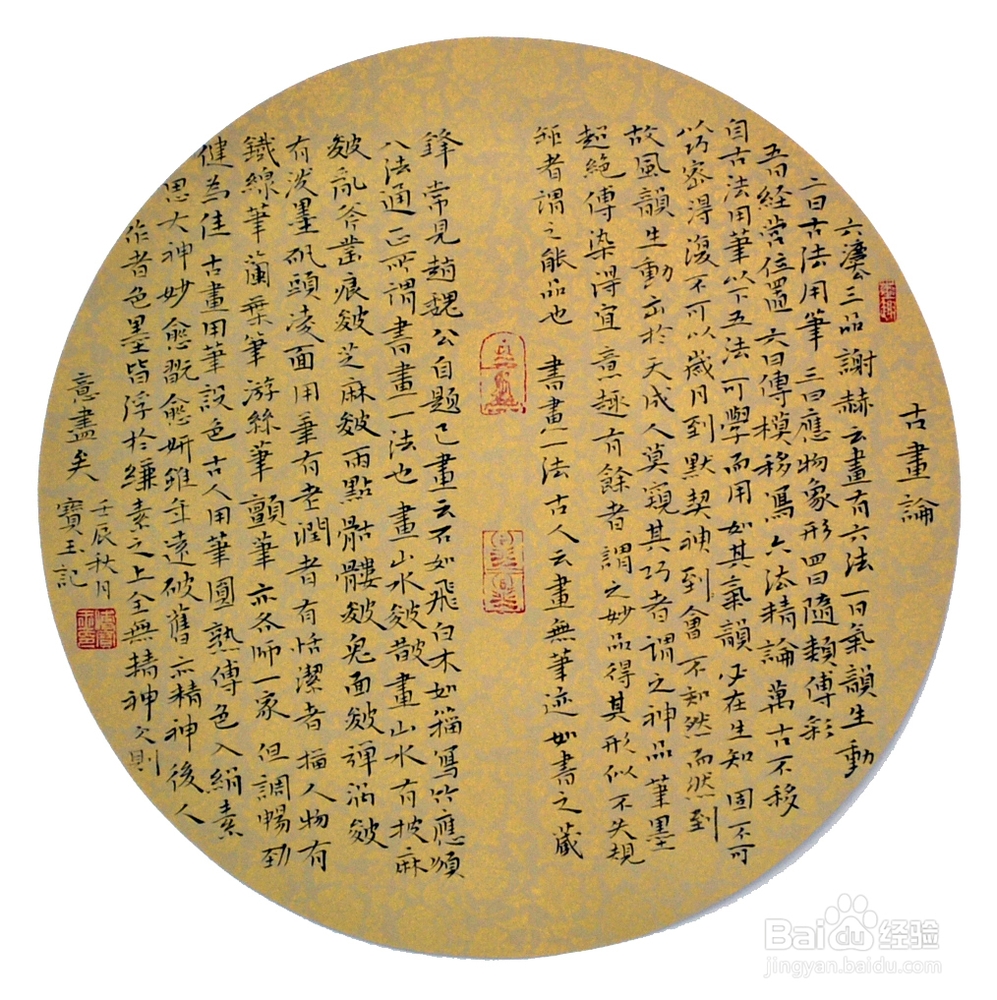 古畫論
六法三品謝赫云畫有六法一曰氣韻生動
二曰古法用筆三曰應物象形四曰隨類傅彩
五曰經營位置六曰傳模移寫六法精論萬古不移
自古法用筆以下五法可學而用如其氣韻必在生知固不可
以巧密得復不可以歲月到默契神到會不知然而然到
故風韻生動出於天成人莫窺其巧者謂之神品筆墨
超絕傅染得宜意趣有餘者謂之妙品得其形似不失規
矩者謂之能品也 書畫一法古人云畫無筆迹如書之藏
鋒常見趙魏公自題己畫云石如飛白木如籀寫竹應須
八法通正所謂書畫一法也 畫山水皴散畫山水有披麻
皴亂斧鑿痕皴芝麻皴雨點骷髏皴鬼面皴彈渦皴
有潑墨礬頭凌面用筆有老潤者有恬潔者描人物有
鐵線筆蘭葉筆游絲筆顫筆亦各師一家但調暢勁
健為佳古畫用筆設色古人用筆圓熟傅色入絹素
思大神妙愈翫愈妍雖年遠破舊亦精神後人
作者色墨皆浮於縑素之上全無精神久則
意盡矣 壬辰秋月
寶玉記
Baidu经验
jingyan.baidu.com